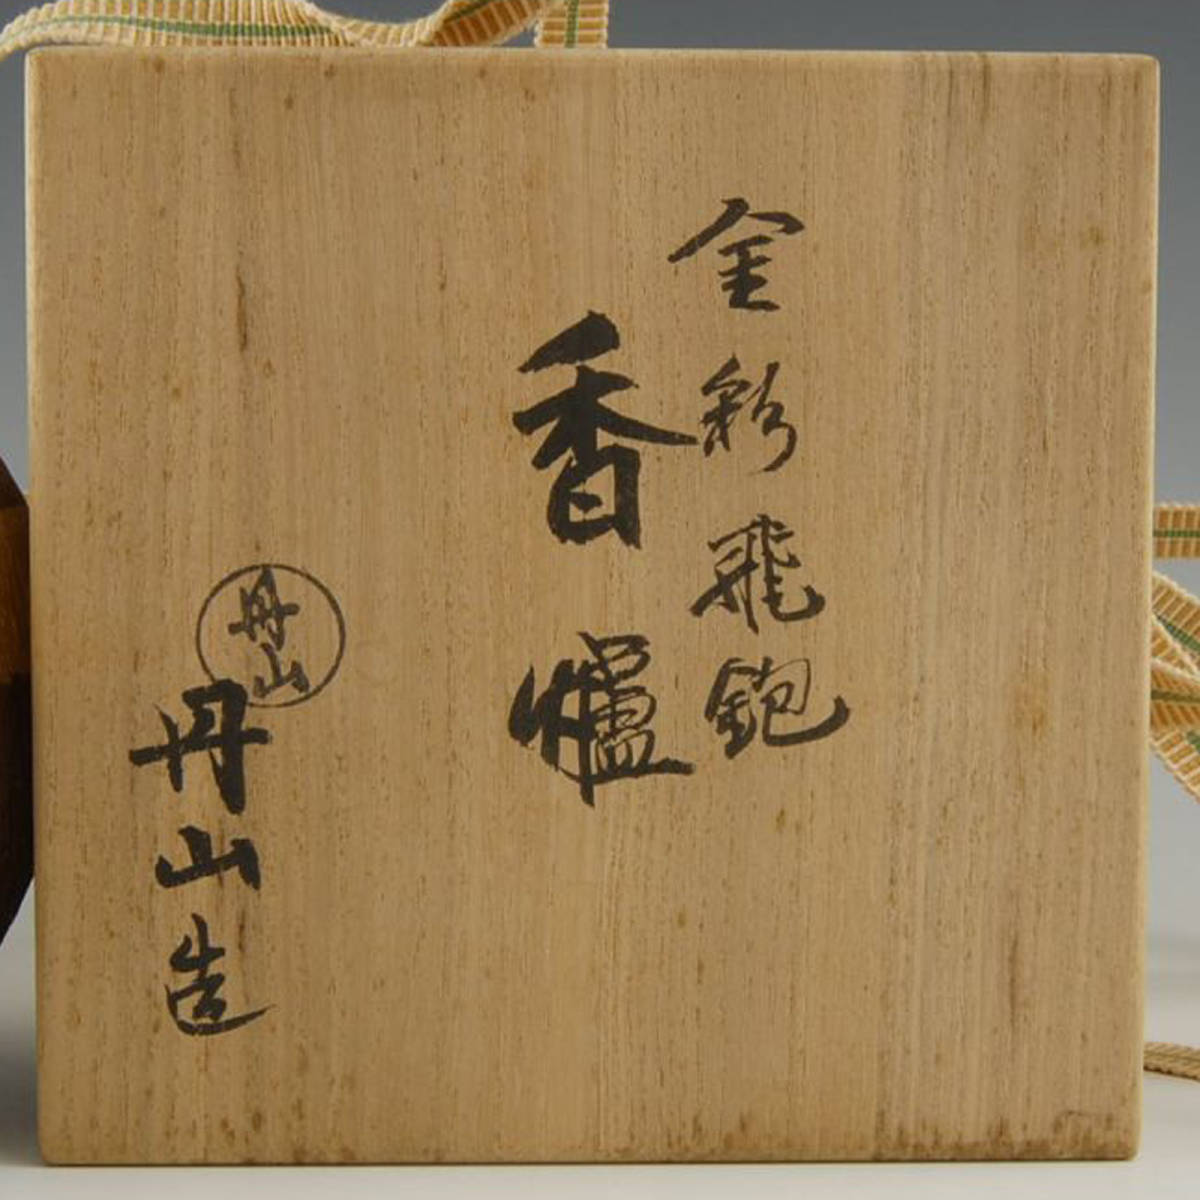 金彩飛鉋
香爐
丹山
丹山造